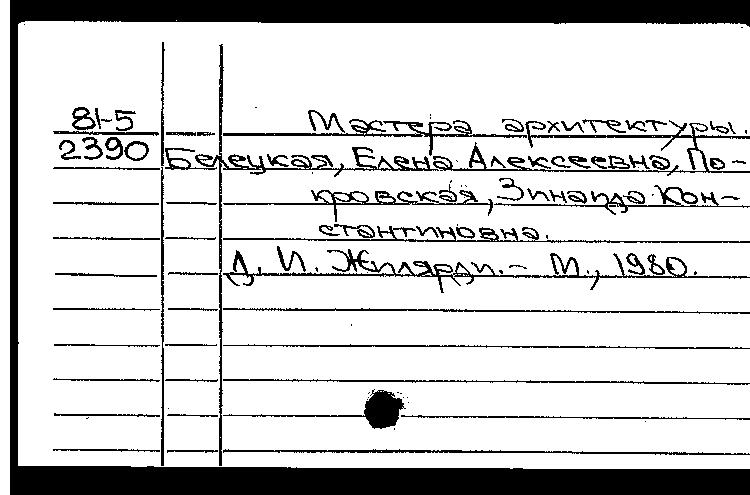 81-5 Мастера архитектуры.
2390 Белецкая, Елена Алексеевна, По-
кровская, Зинаида Кон-
стантиновна.
Д. И. Жилярди. - М., 1980.